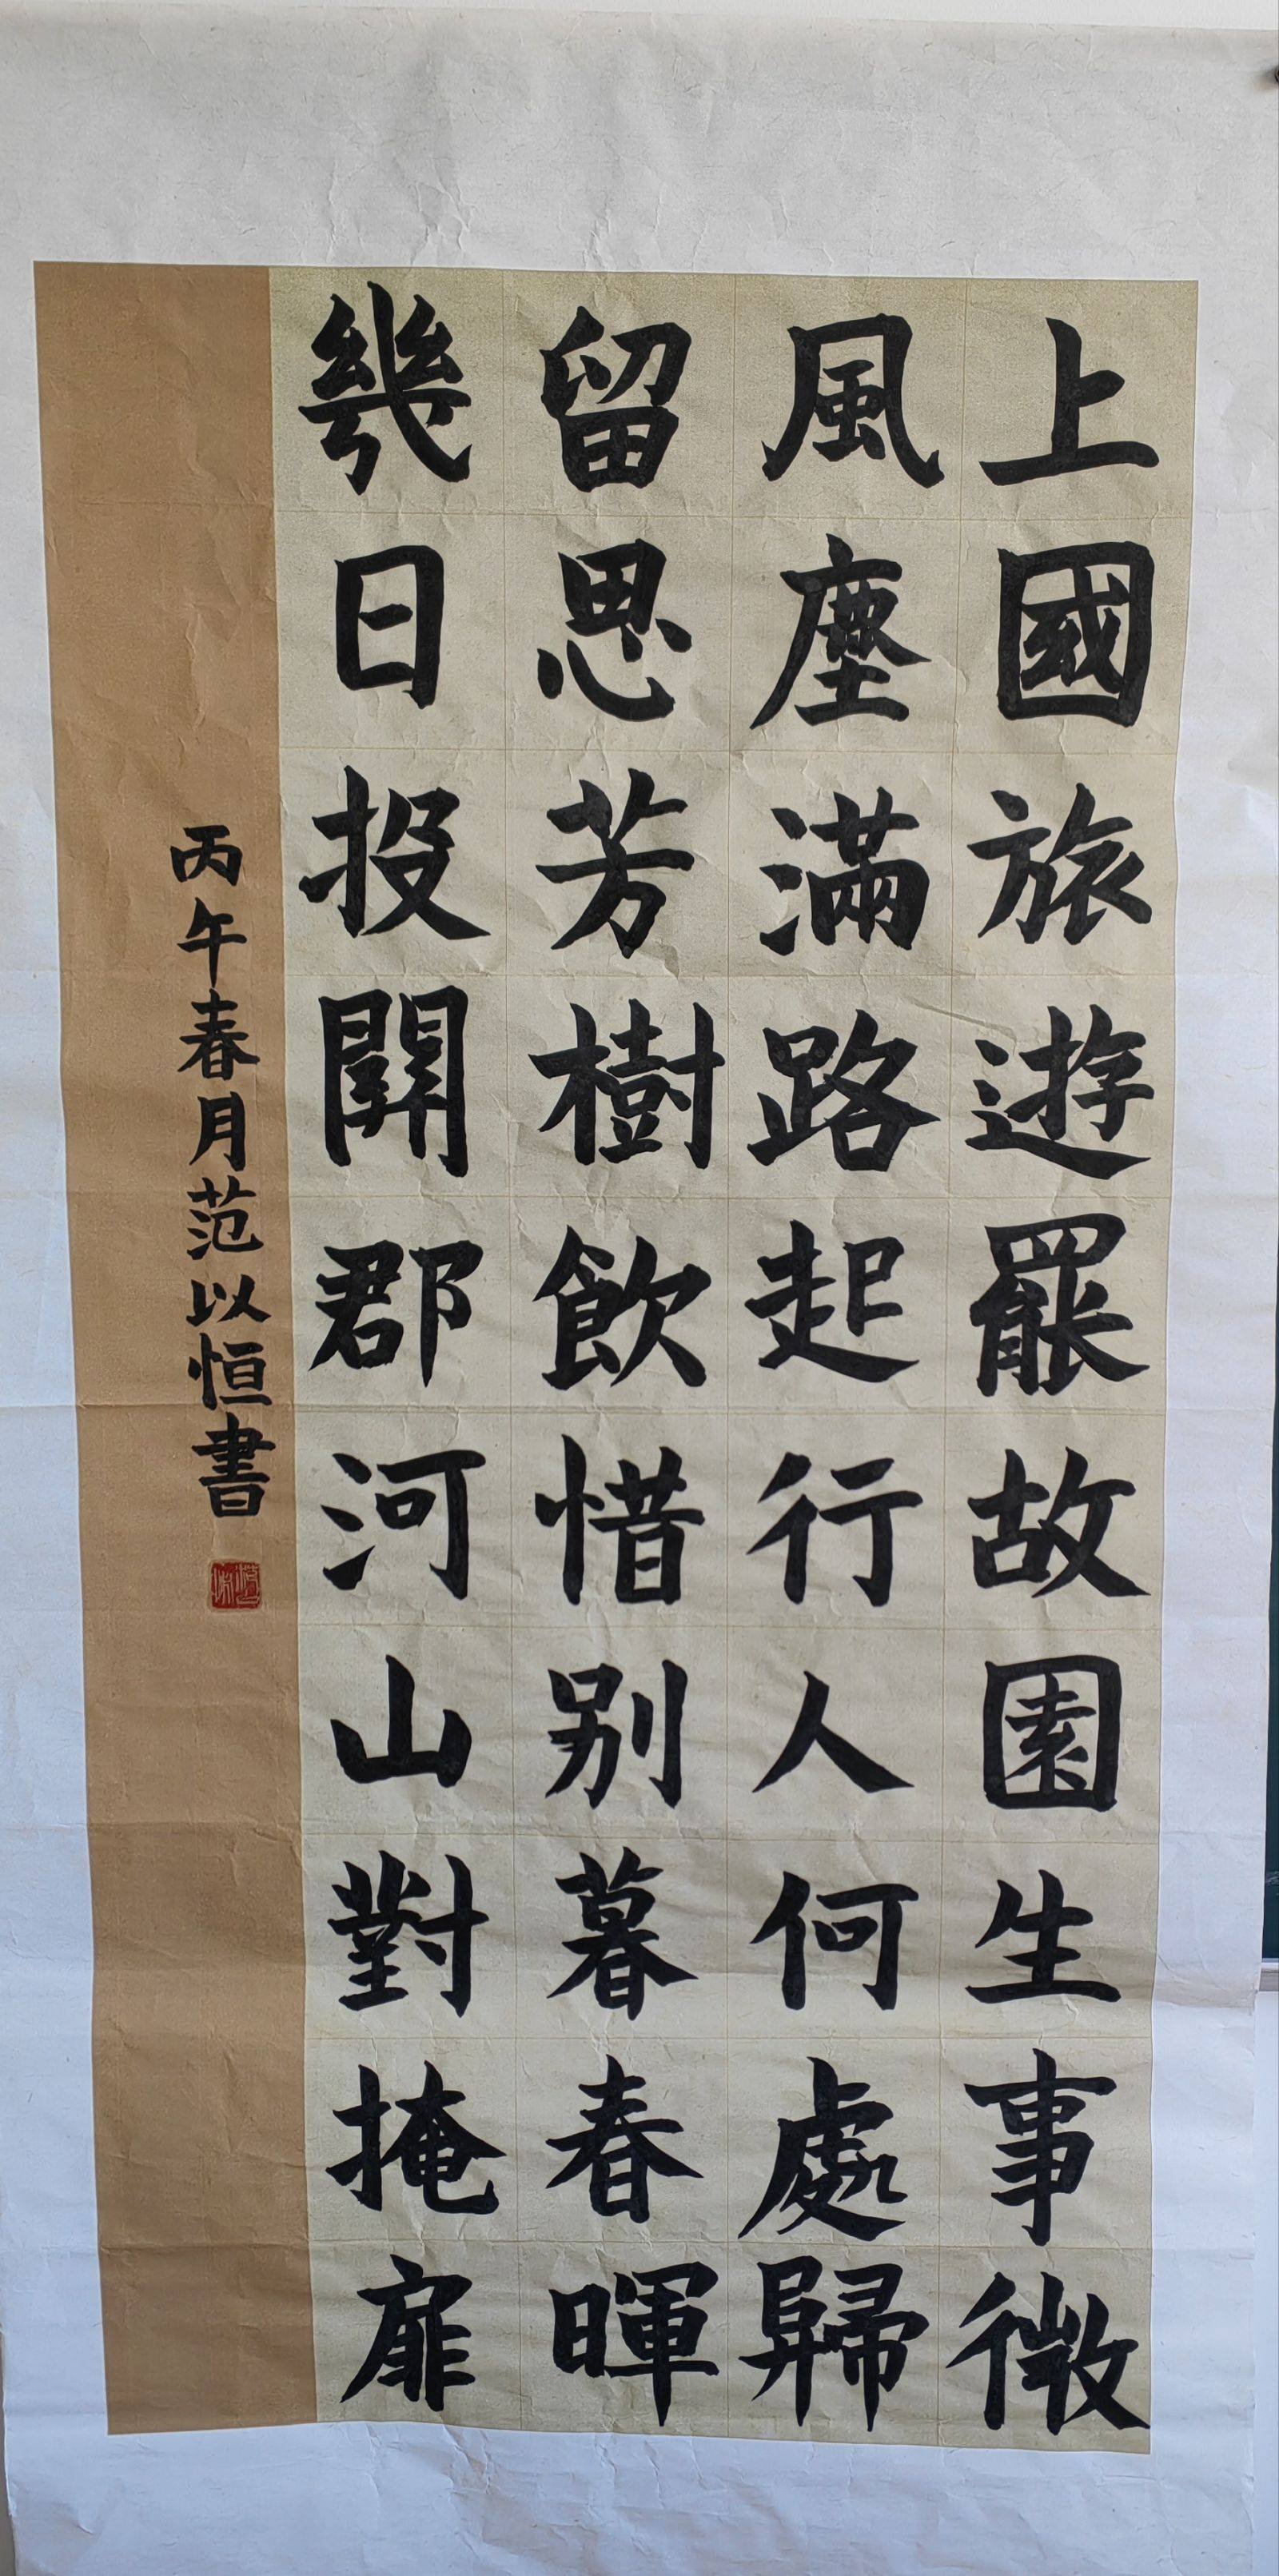 上國旅遊罷故園生事微
風塵滿路起行人何處歸
留思芳樹飲惜别暮春暉
幾日投關郡河山對掩扉
丙午春月范以恒書